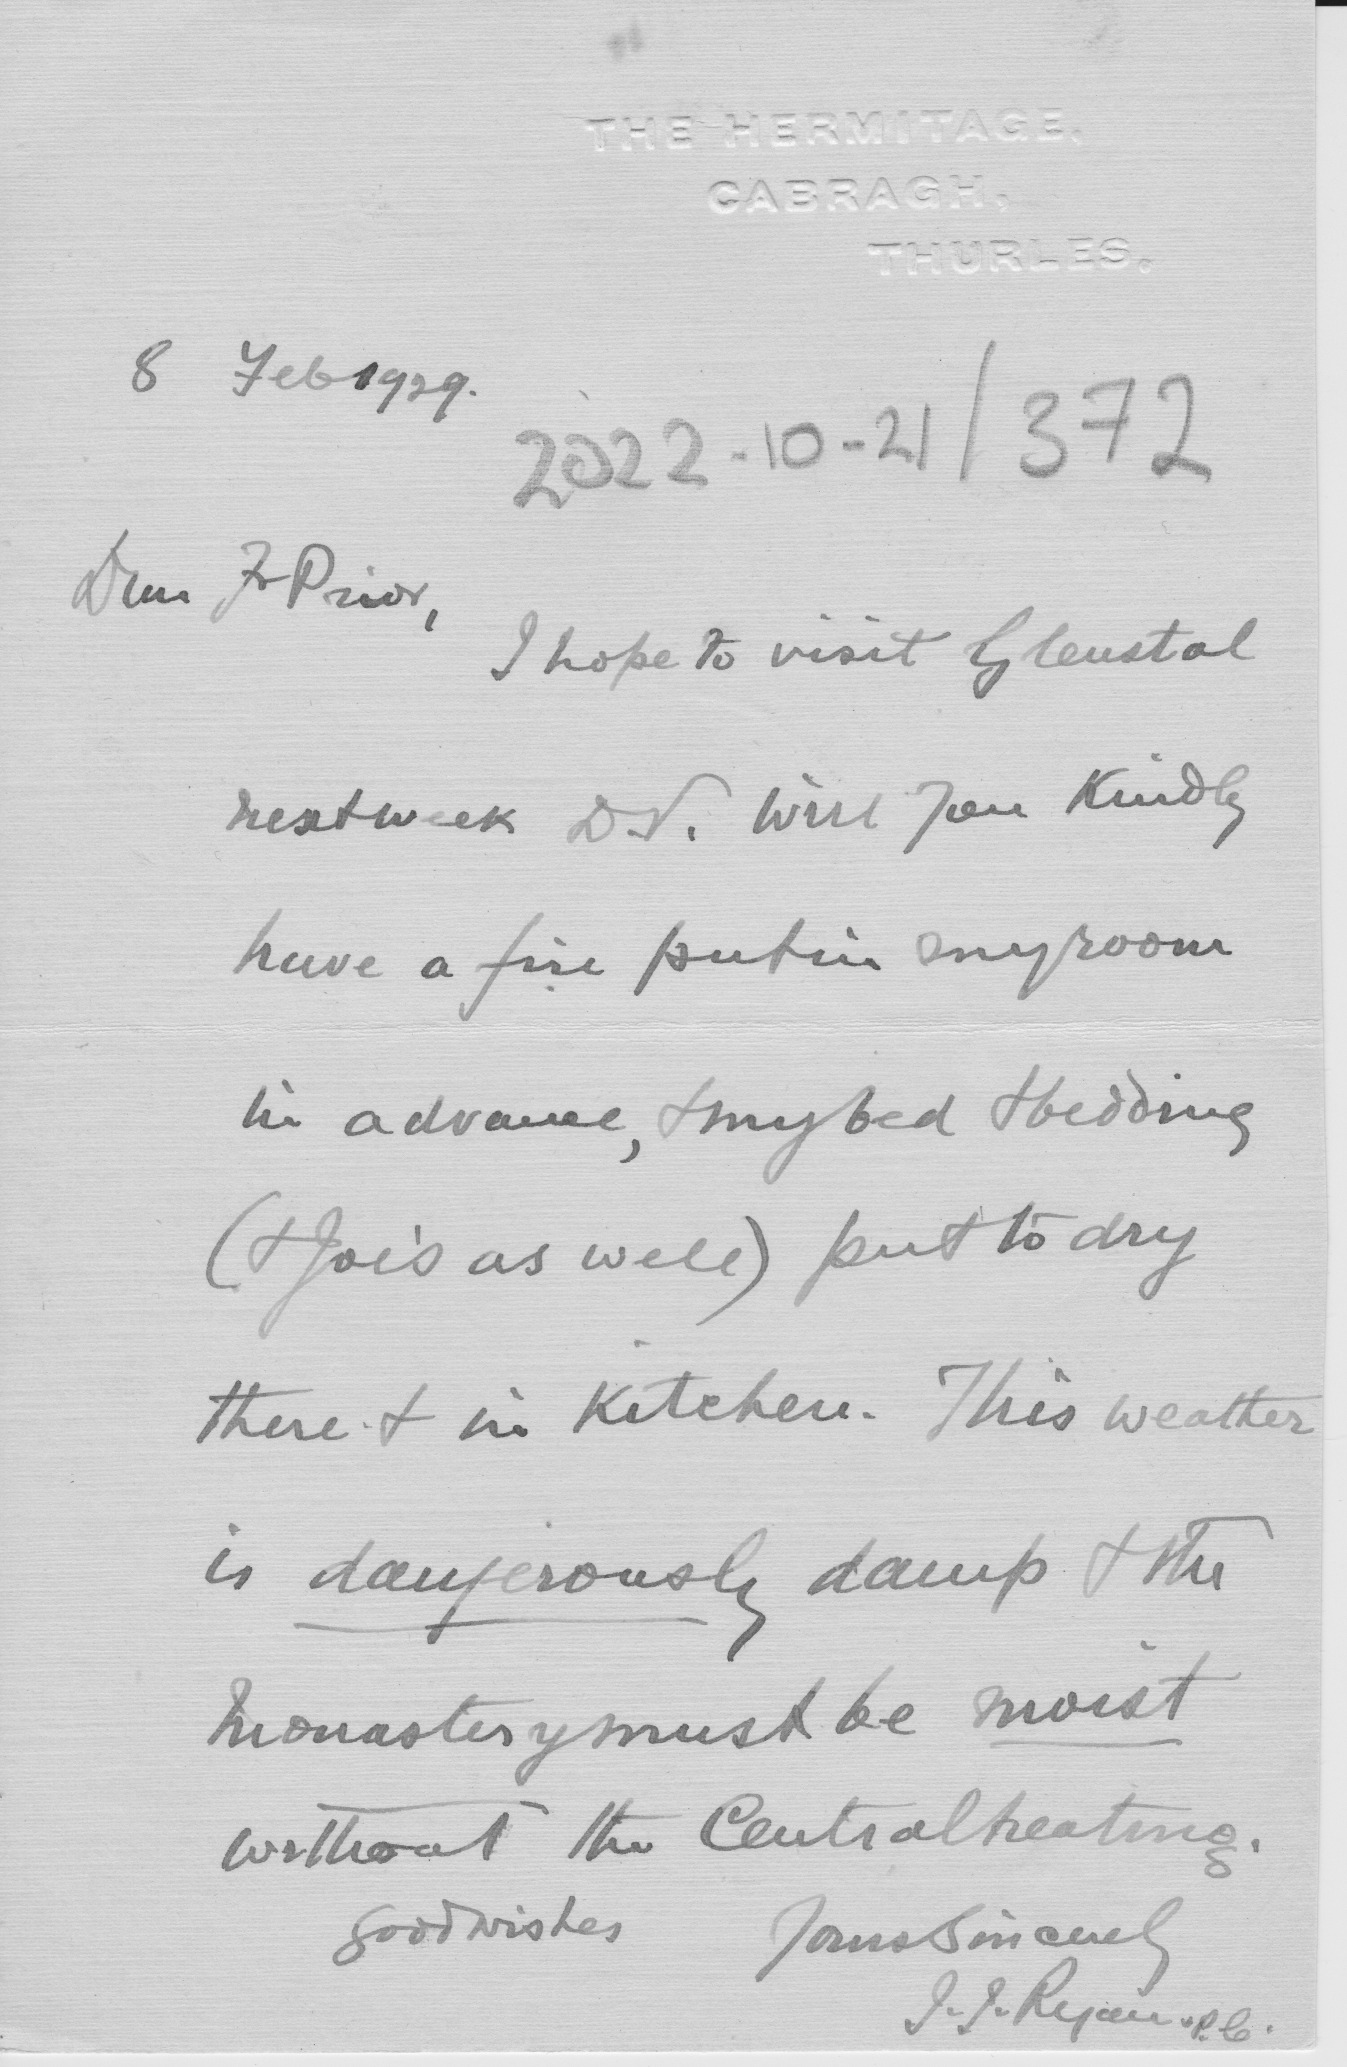 THE HERMITAGE,
CABRAGH,
THURLES.
8 Feb 1929.
2022-10-21/372
Dear Fr Prior,
I hope to visit Glenstal
next week D.V. Will you kindly
have a fire put in my room
in advance, & my bed & bedding
(& Joe's as well) put to dry
there & in kitchen. This weather
is dangerously damp & the
monastery must be moist
without the Central heating.
good wishes Yours Sincerely
J. J. Ryan. P.P.